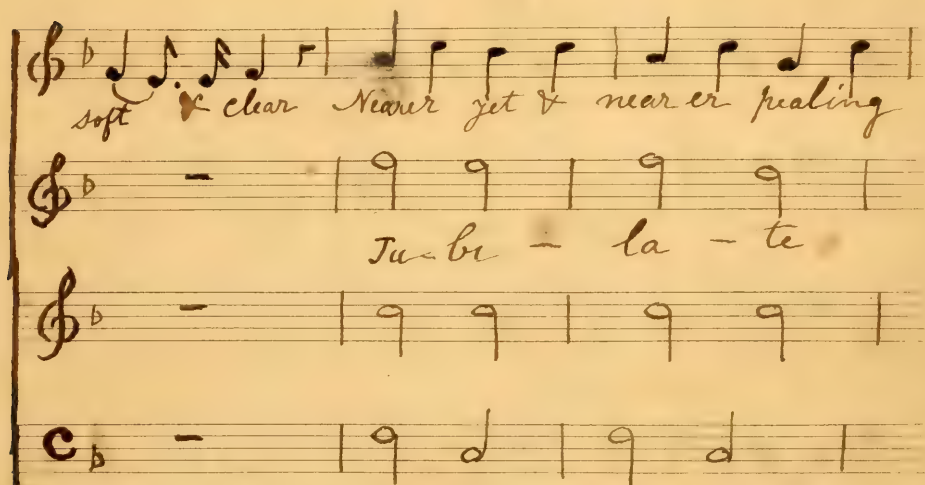 soft & clear Nearer yet & near er pealing
Ju - bi - la - te